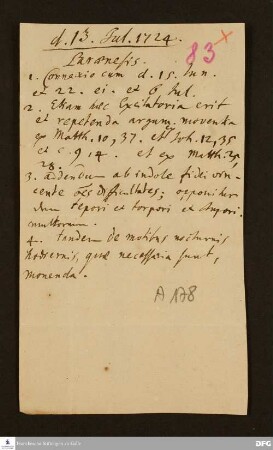 d. 13. Jul. 1724.
83
Paraenesis.
1. Connexio cum d. 15. Jun.
et 22. ei. et 6 Jul.
2. Etiam haec Excitatoria erit
et repetenda argum. movenda
ex Matth. 10, 37. et Joh. 12, 35
et c. 9 14. et ex Matth. 24,
28.
3. addendum ab indole fidei vin-
cente oes difficultates; opponen-
dum tepori et torpori et stupori
multorum.
4. tandem de motibus nocturnis
hodiernis, quae necessaria sunt,
monenda.
A 178
DFG